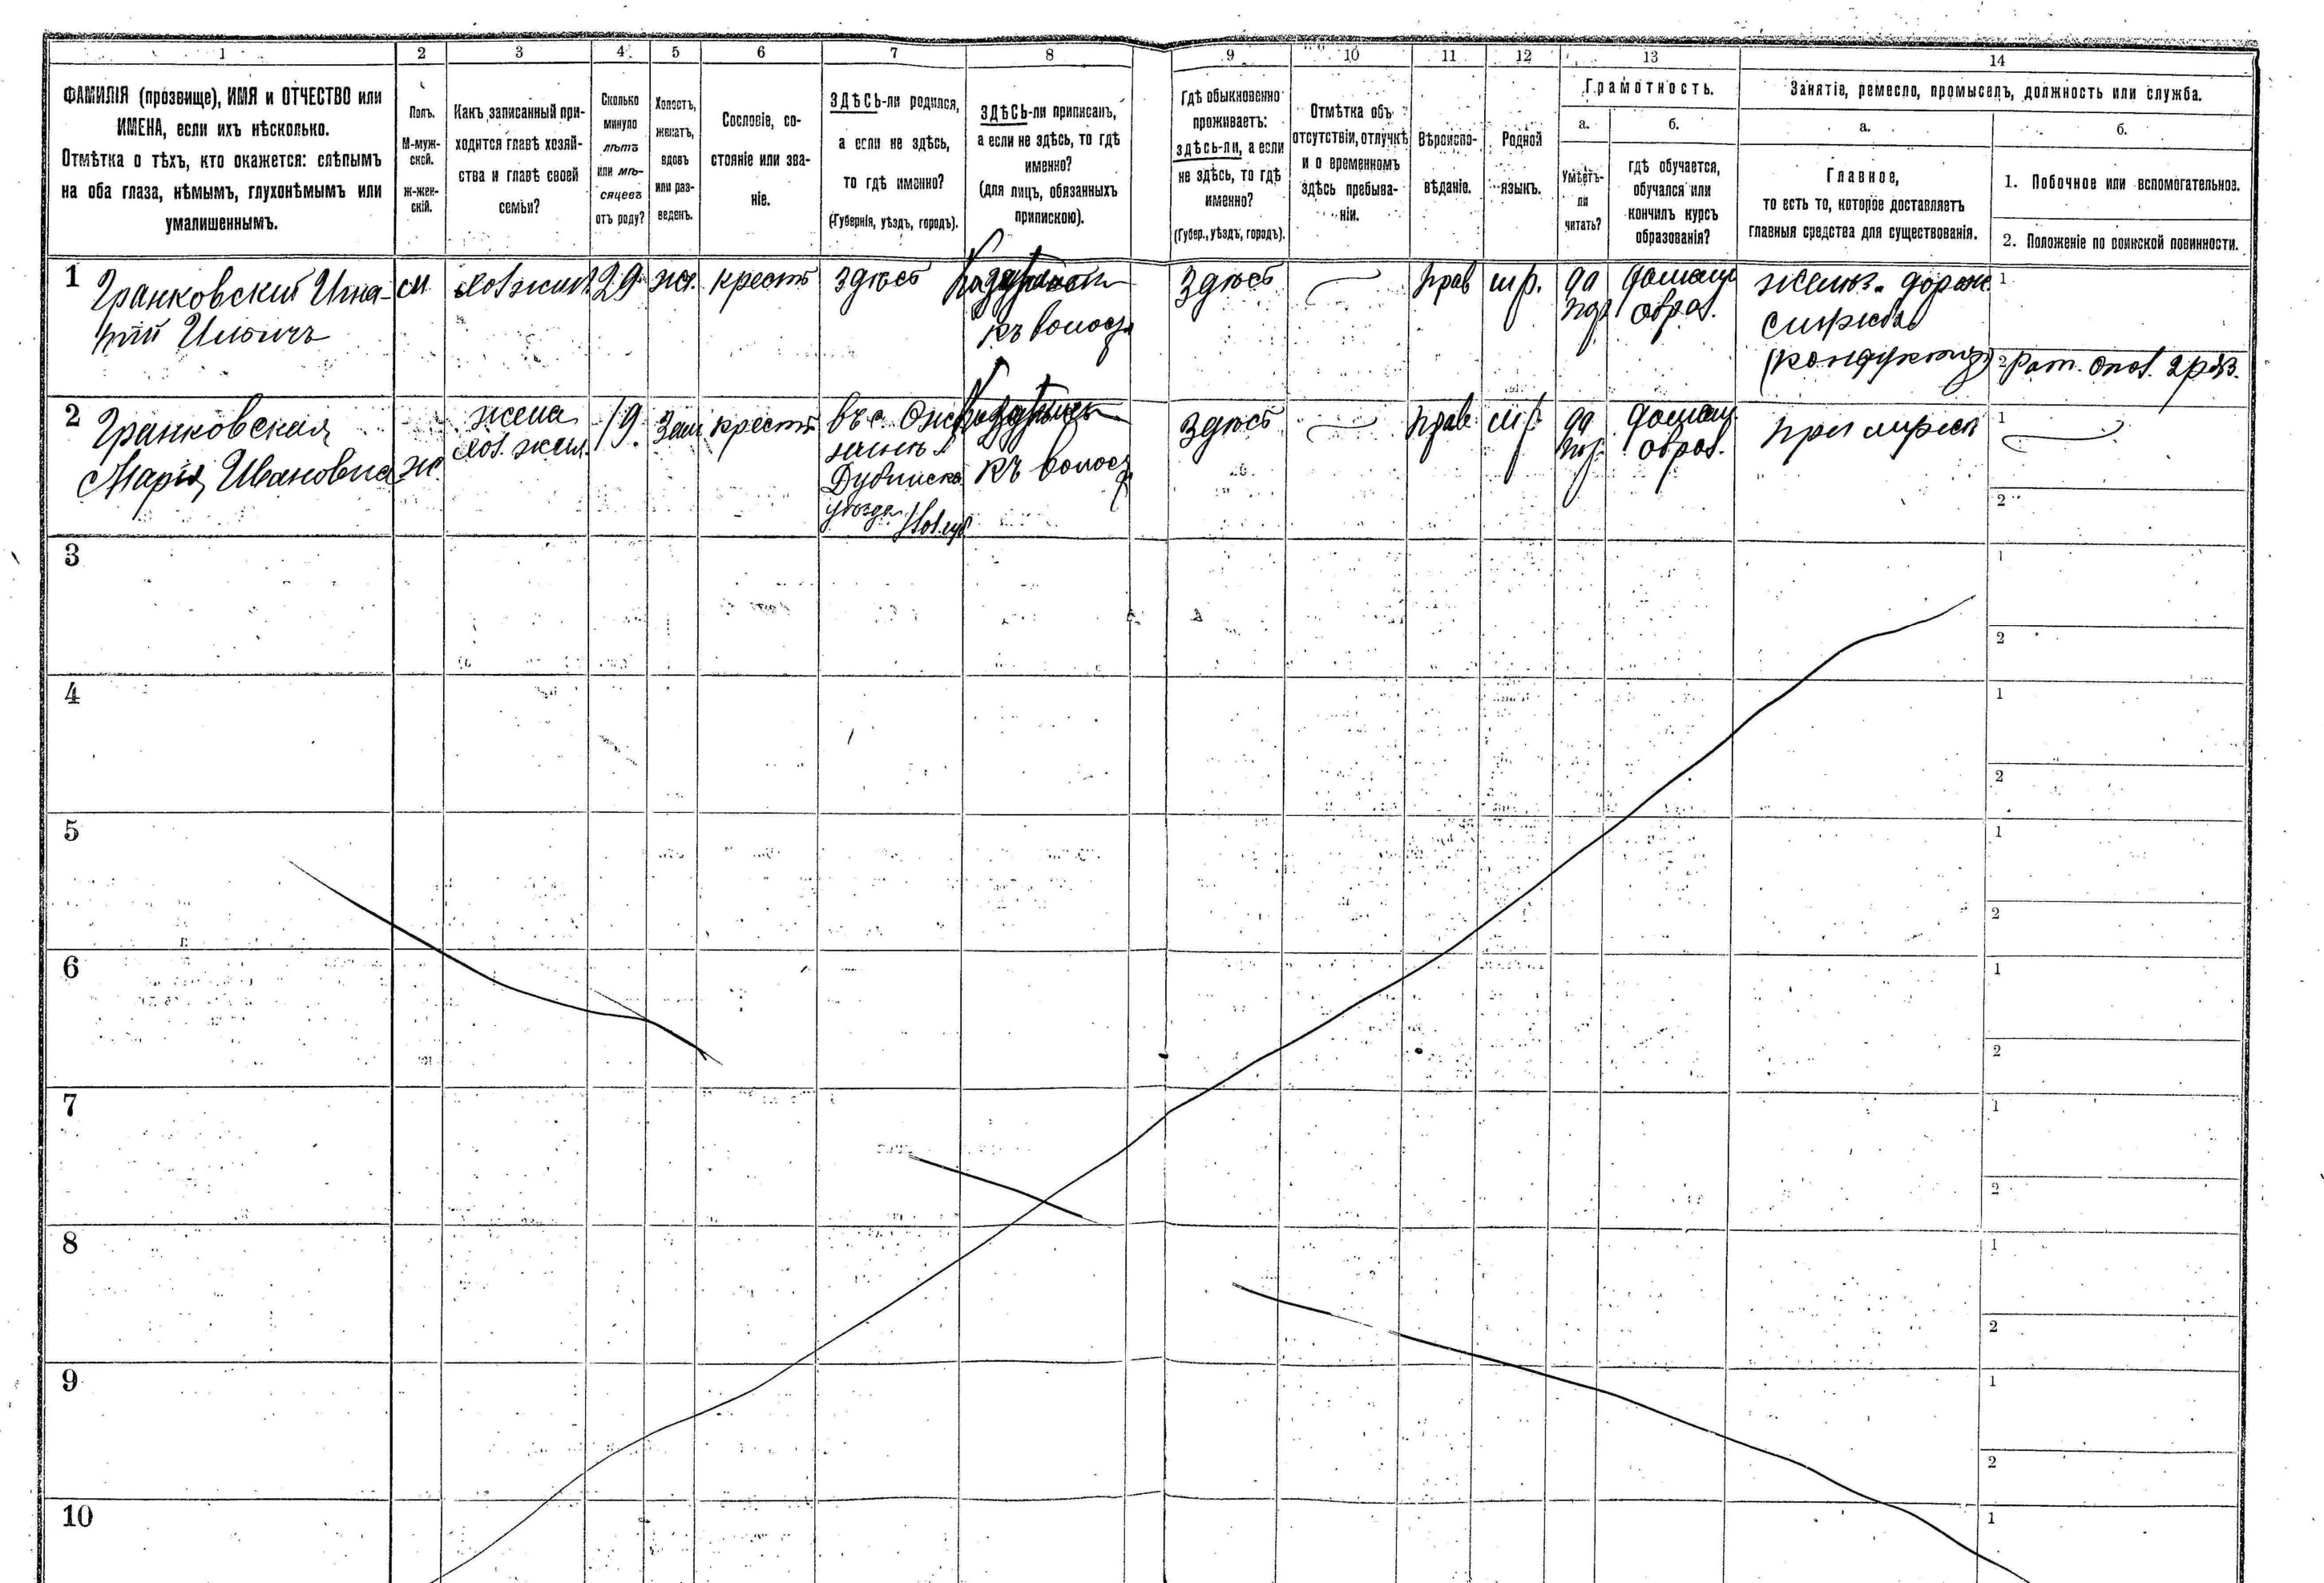 1 2 3 4 5 6 7 8 9 10 11 12 13 14
ФАМИЛІЯ (прозвище), ИМЯ и ОТЧЕСТВО или
ИМЕНА, если ихъ нѣсколько.
Отмѣтка о тѣхъ, кто окажется: слѣпымъ
на оба глаза, нѣмымъ, глухонѣмымъ или
умалишеннымъ.
Полъ.
М-муж-
ской.
Ж-жен-
скій.
Какъ записанный при-
ходится главѣ хозяй-
ства и главѣ своей
семьи?
Сколько
минуло
лѣтъ
или мѣ-
сяцевъ
отъ роду?
Холостъ,
женатъ,
вдовъ
или раз-
веденъ.
Сословіе, со-
стояніе или зва-
ніе.
ЗДѢСЬ-ли родился,
а если не здѣсь,
то гдѣ именно?
(Губернія, уѣздъ, городъ).
ЗДѢСЬ-ли приписан,
а если не здѣсь, то гдѣ
именно?
(для лицъ, обязанныхъ
припискою).
Гдѣ обыкновенно
проживаетъ:
здѣсь-ли, а если
не здѣсь, то гдѣ
именно?
(Губер., уѣздъ, городъ).
Отмѣтка объ
отсутствіи, отлучкѣ
и о временномъ
здѣсь пребыва-
ніи.
Вѣроиспо-
вѣданіе.
Родной
языкъ.
Грамотность.
а.
Умѣетъ-
ли
читать?
б.
гдѣ обучается,
обучался или
кончилъ курсъ
образованія?
Занятіе, ремесло, промыселъ, должность или служба.
а.
Главное,
то есть то, которое доставляетъ
главныя средства для существованія.
б.
1. Побочное или вспомогательное.
2. Положеніе по воинской повинности.
1 Гранковскій Игна-
тій Ильичъ
м
хозяинъ
29
ж.
крест
здѣсь
къ волос
здѣсь
прав
да
домаш
образ.
желѣз. дорож
служба
(кондукторъ)
1
2 Рат. опол. 2 раз.
2 Гранковская
Марія Ивановна
ж.
жена
хозяин.
19
Зам
крест
уѣзда
къ волос
здѣсь
прав
да
домаш
образ.
при мужѣ
1
2
3
1
2
4
1
2
5
1
2
6
1
2
7
1
2
8
1
2
9
1
2
10
1